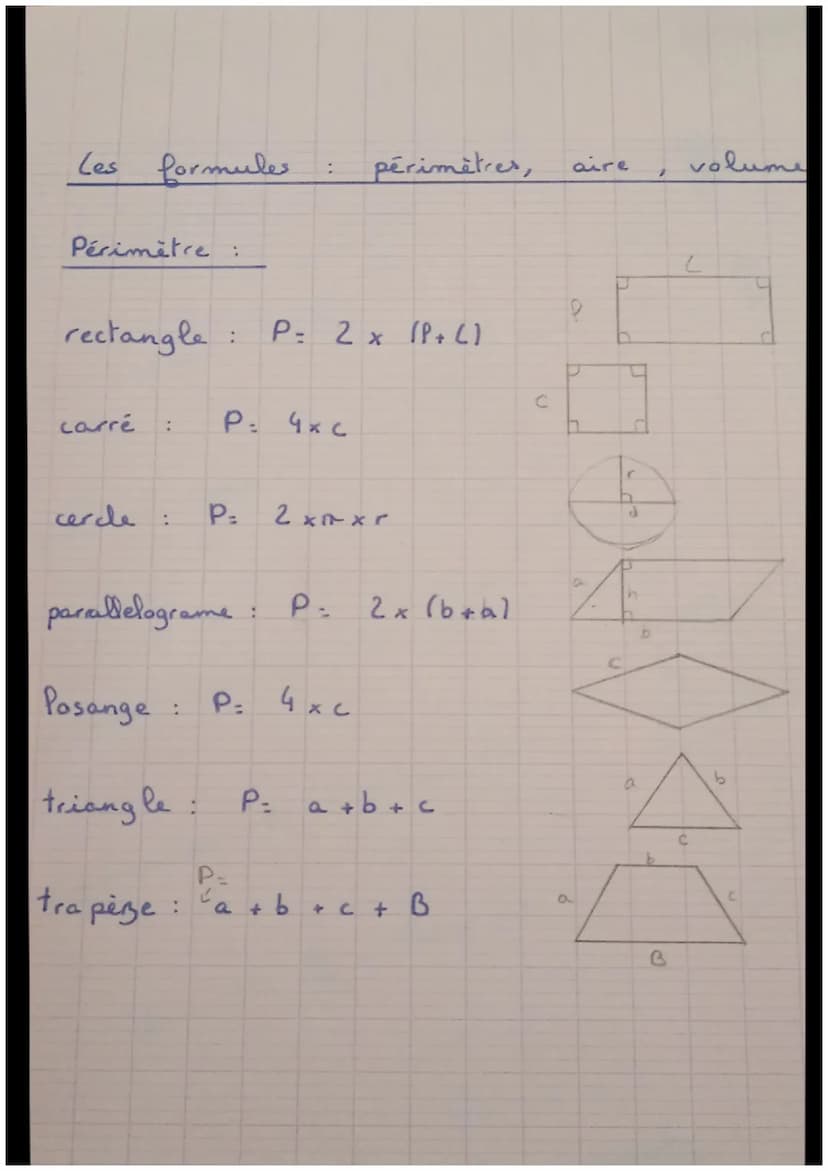 Les formules : périmètres, aire, volume
Périmètre :
L
l
rectangle : P= 2 x (l+L)
c
carré : P= 4xc
r
d
cercle : P= 2 xπxr
a
h
b
parallelograme : P= 2x (b+a)
c
losange : P= 4 x c
a
b
c
triangle : P= a+b+c
P=
b
a
c
B
trapèze : a + b + c + B